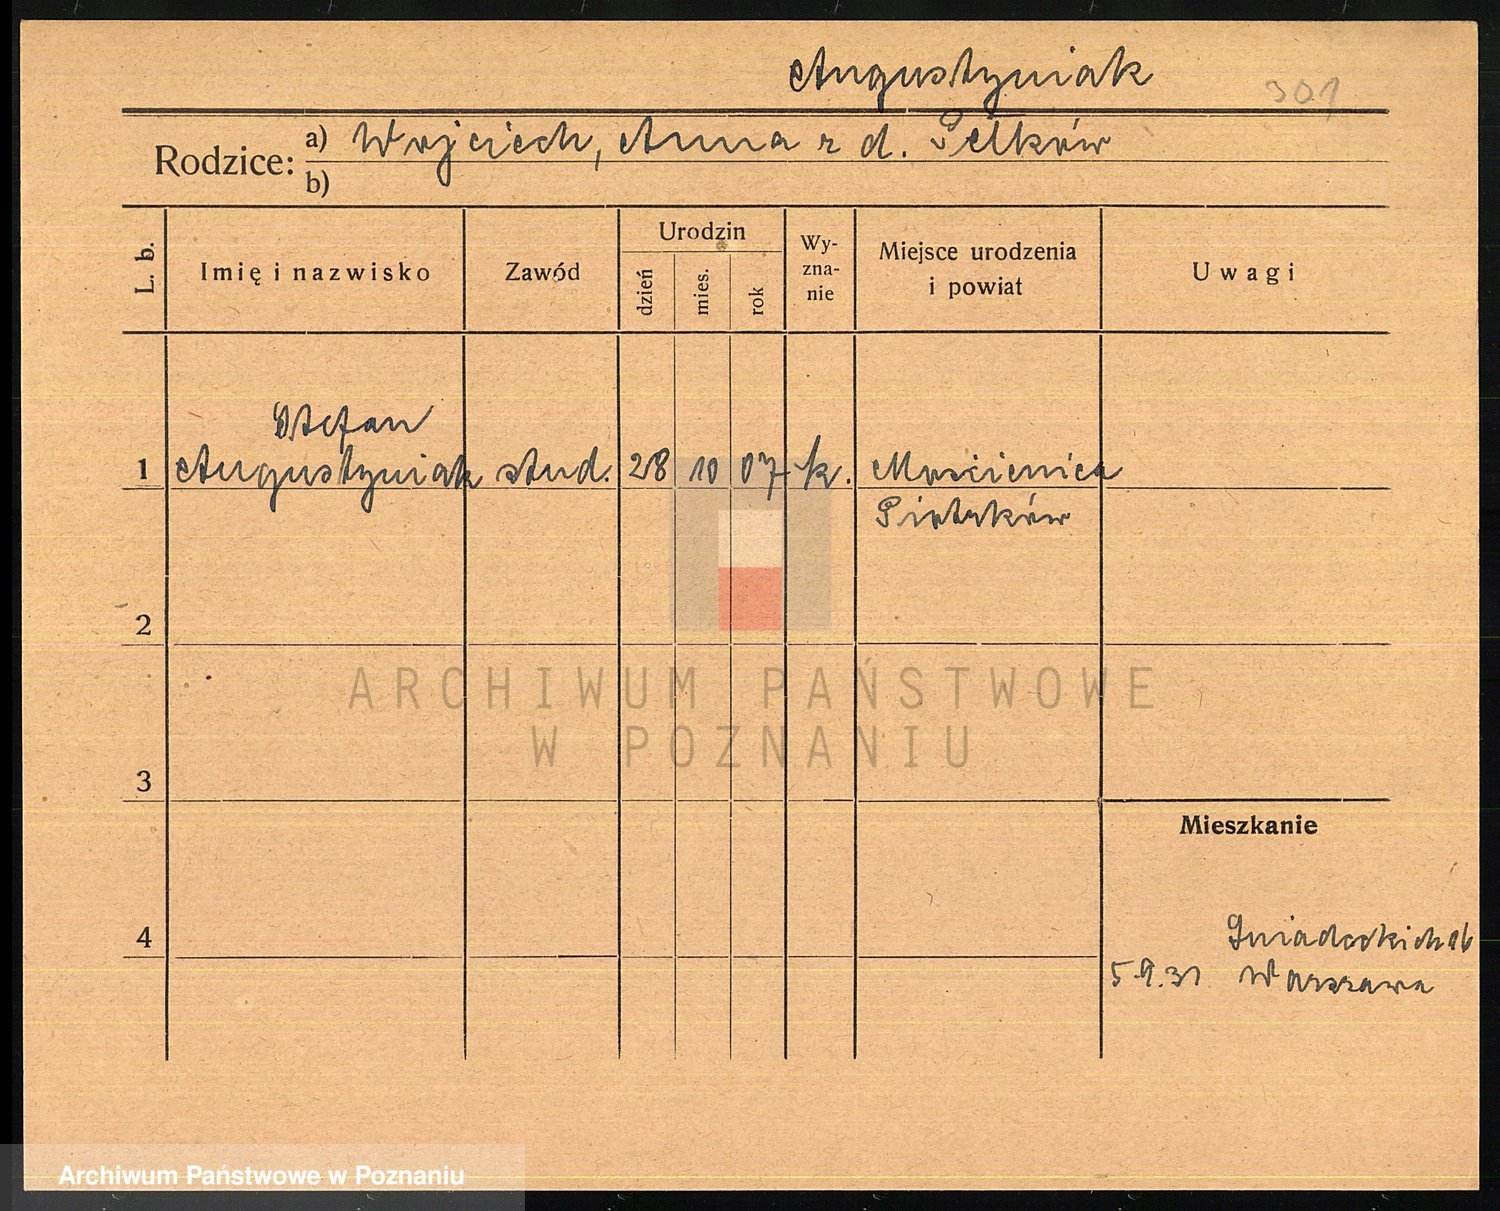 Augustyniak
301
Rodzice: a) Wojciech, Anna z d. Pełków
b)
L. b.
Imię i nazwisko
Zawód
Urodzin
dzień
mies.
rok
Wy-
zna-
nie
Miejsce urodzenia
i powiat
Uwagi
Stefan
1 Augustyniak stud. 28 10 07 k. Mościenica
Piotrków
2
ARCHIWUM PAŃSTWOWE
W POZNANIU
3
Mieszkanie
4
Śniadeckich 16
5.9.31 Warszawa
Archiwum Państwowe w Poznaniu